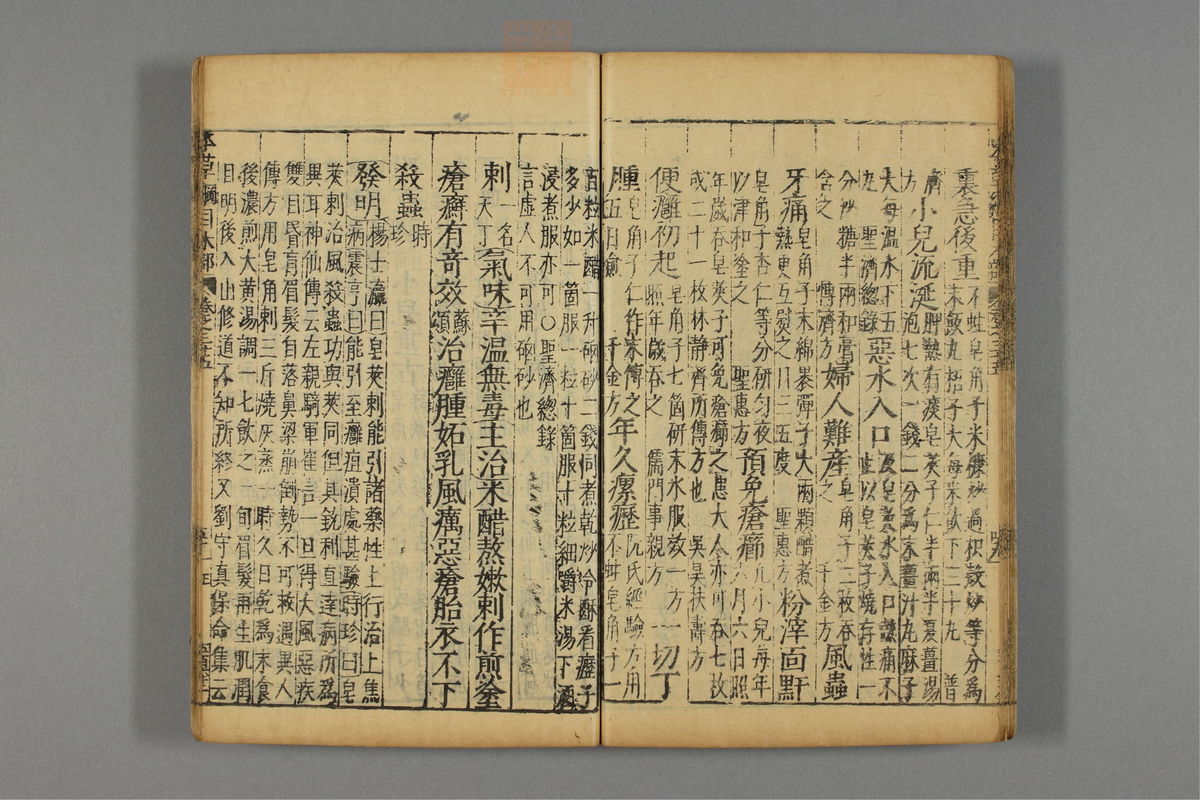 裏急後重 不蛀皂角子米糠炒過枳殼炒等分爲
末飯丸梧子大每米飲下三十丸 普
濟方 小兒流涎 脾熱有痰皂莢子仁半兩半夏薑湯
泡七次一錢二分爲末薑汁丸麻子
大每溫水下五丸 聖濟總錄 惡水入口 及皂莢水入口熱痛不
止以皂莢子燒存性一
分沙糖半兩和膏含之 博濟方 婦人難產 皂角子二枚吞之 千金方 風蟲
牙痛 皂角子末綿裹彈子大兩顆醋煮熱更互熨之日三五度 聖惠方 粉滓面䵟
皂角子杏仁等分研勻夜以津和塗之 聖惠方 預免瘡癤 凡小兒每年六月六日照
年歲吞皂莢子可免瘡癤之患大人亦可吞七枚
或二十一枚林靜齋所傳方也 吳旻扶壽方
便癰初起 皂角子七箇研末水服效一方照年歲吞之 儒門事親方 一切丁
腫 皂角子仁作末傅之五日愈 千金方 年久瘰癧 阮氏經驗方用不蛀皂角子一
百粒米醋一升硇砂二錢同煮乾炒冷酥看癧子
多少如一箇服一粒十箇服十粒細嚼米湯下酒
浸煮服亦可○聖濟總錄
言虛人不可用硇砂也
刺 一名天丁 氣味 辛溫無毒 主治 米醋熬嫩刺作煎塗
瘡癬有奇效 蘇頌 治癰腫妬乳風癘惡瘡胎衣不下
殺蟲 時珍
發明 楊士瀛曰皂莢刺能引諸藥性上行治上焦
病震亨曰能引至癰疽潰處甚驗時珍曰皂
莢刺治風殺蟲功與莢同但其銳利直達病所爲
異耳神仙傳云左親騎軍崔言一旦得大風惡疾
雙目昏盲眉髮自落鼻梁崩倒勢不可救遇異人
傳方用皂角刺三斤燒灰蒸一時久日乾爲末食
後濃煎大黃湯調一七飲之一旬眉髮再生肌潤
目明後入山修道不知所終又劉守真保命集云
本草綱目木部 卷之三十五